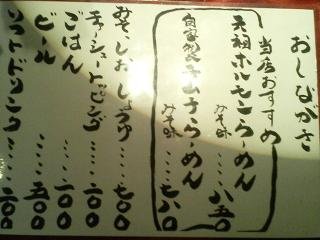 おしながき
当店おすすめ
元祖ホルモンらーめん
みそ味 ‥‥八五〇
自家製キムチらーめん
みそ味 ‥‥七八〇
みそ、しお、しょうゆ ‥‥七〇〇
チャーシュートッピング ‥‥二〇〇
ごはん ‥‥一〇〇
ビール ‥‥五〇〇
ソフトドリンク ‥‥二〇〇